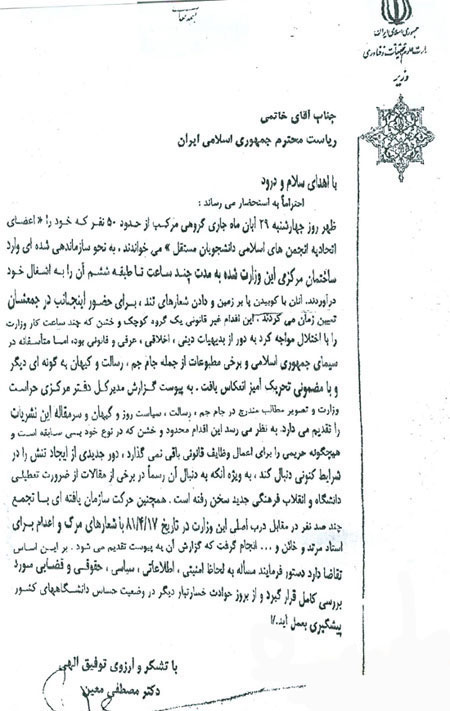 بسمه تعالی
جمهوری اسلامی ایران
وزارت علوم تحقیقات و فناوری
وزیر
جناب آقای خاتمی
ریاست محترم جمهوری اسلامی ایران
با اهدای سلام و درود
احتراماً به استحضار می رساند :
ظهر روز چهارشنبه ۲۹ آبان ماه جاری گروهی مرکب از حدود ۵۰ نفر که خود را « اعضای
اتحادیه انجمن های اسلامی دانشجویان مستقل » می خواندند ، به نحو سازماندهی شده ای وارد
ساختمان مرکزی این وزارت شده به مدت چند ساعت تا طبقه ششم آن را به اشغال خود
درآوردند. آنان با کوبیدن پا بر زمین و دادن شعارهای تند ، برای حضور اینجانب در جمعشان
تعیین زمان می کردند . این اقدام غیر قانونی یک گروه کوچک و خشن که چند ساعت کار وزارت
را با اختلال مواجه کرد به دور از بدیهیات دینی ، اخلاقی ، عرفی و قانونی بود، اما متأسفانه در
سیمای جمهوری اسلامی و برخی مطبوعات از جمله جام جم ، رسالت و کیهان به گونه ای دیگر
و با مضمونی تحریک آمیز انعکاس یافت . به پیوست گزارش مدیرکل دفتر مرکزی حراست
وزارت و تصویر مطالب مندرج در جام جم ، رسالت ، سیاست روز و کیهان و سرمقاله این نشریات
را تقدیم می دارد. به نظر می رسد این اقدام محدود و خشن که در نوع خود بی سابقه است و
هیچگونه حریمی را برای اعمال وظایف قانونی باقی نمی گذارد ، دور جدیدی از ایجاد تنش را در
شرایط کنونی دنبال کند ، به ویژه آنکه به دنبال آن رسماً در برخی از مقالات از ضرورت تعطیلی
دانشگاه و انقلاب فرهنگی جدید سخن رفته است . همچنین حرکت سازمان یافته ای با تجمع
چند صد نفر در مقابل درب اصلی این وزارت در تاریخ ۸۱/۴/۱۷ با شعارهای مرگ و اعدام برای
استاد مرتد و خائن و ... انجام گرفت که گزارش آن به پیوست تقدیم می شود . بر این اساس
تقاضا دارد دستور فرمایند مسأله به لحاظ امنیتی ، اطلاعاتی ، سیاسی ، حقوقی و قضایی مورد
بررسی کامل قرار گیرد و از بروز حوادث خسارتبار دیگر در وضعیت حساس دانشگاههای کشور
پیشگیری بعمل آید./
با تشکر و آرزوی توفیق الهی
دکتر مصطفی معین